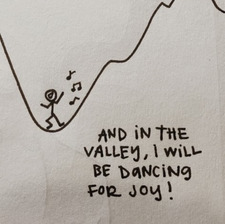 AND IN THE
VALLEY, I WILL
BE DANCING
FOR JOY!